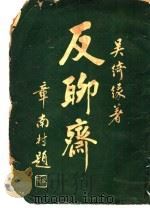 吴绮缘著
反聊齋
章南村題